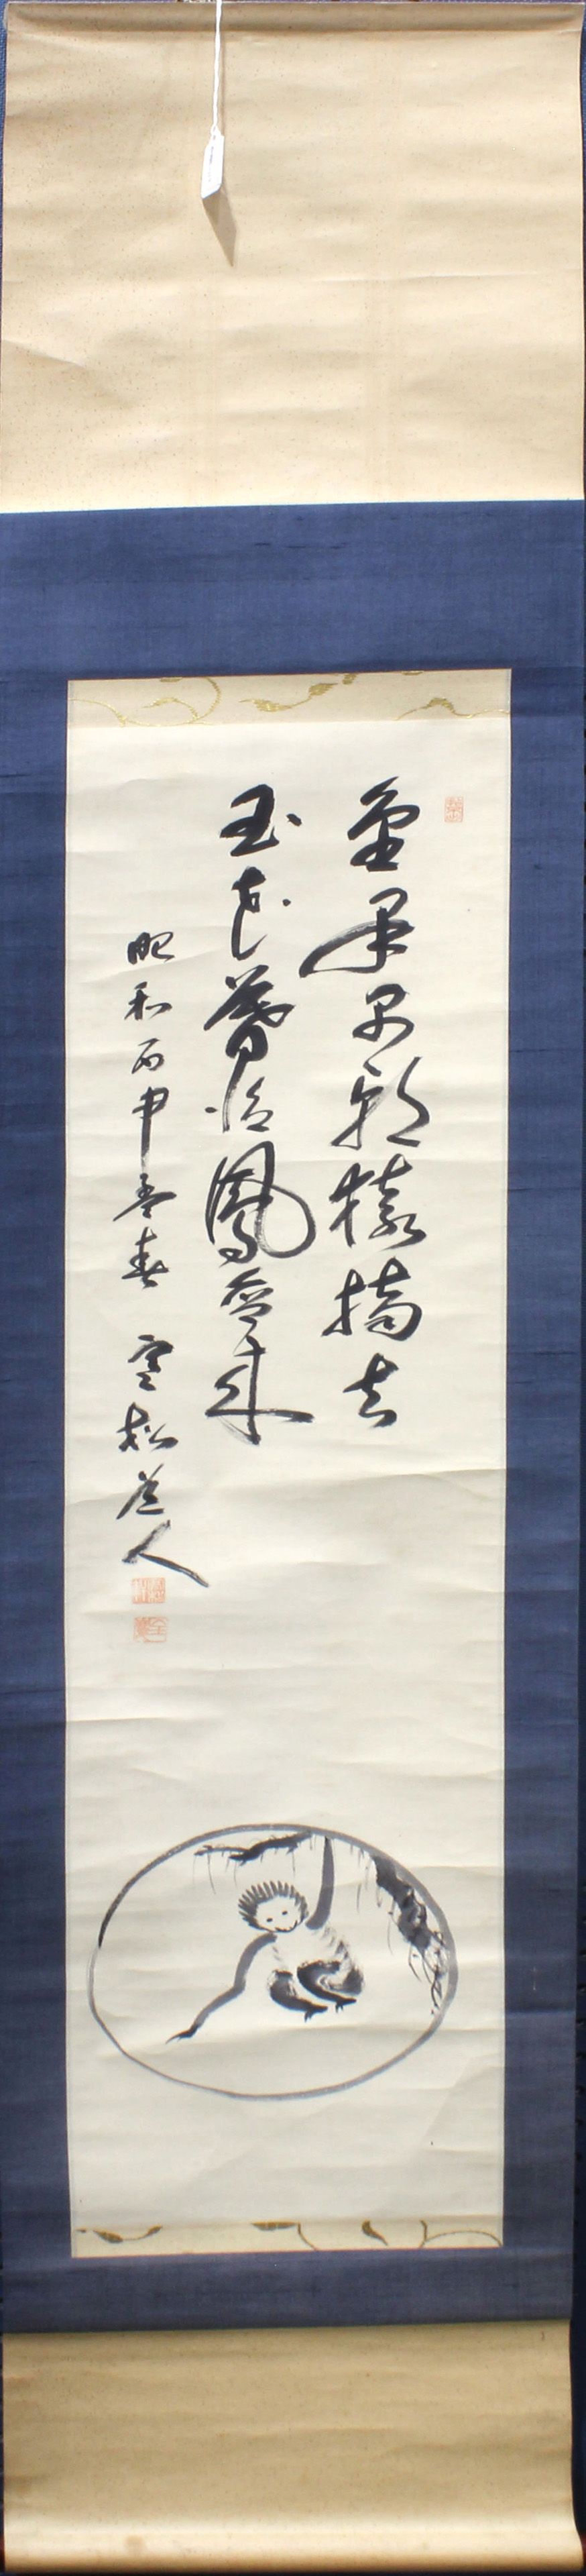 金果早朝猿摘去
玉花暮後鳳啣来
昭和丙申吾春 寒松道人